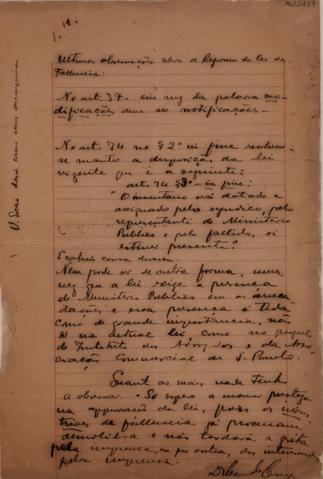 Ultimas observações sobre a Reforma da Lei de
Fallencia:
No art. 37 - em vez da palavra mo-
dificação deve ser notificação -
No art. 74 no § 2º in fine resolveu-
se manter a disposição da lei
vigente que é a seguinte:
art. 74 §3º - in fine:
"O inventario será datado e
assignado pelo syndico, pelo
representante do Ministerio
Publico e pelo fallido, si
estiver presente."
Nem pode ser de outra forma, uma
vez que a lei exige a presença
do Ministerio Publico em as arreca-
dações e essa presença é tida
como de grande importancia, não
só na actual lei como no project.
do Instituto dos Advogados e da Asso-
ciação Commercial de S. Paulo.
Quant. ao mais nada tenh
a observar. Só
na approvação da lei, pois os
de fallencia já procuram
demolil-a e não tardará a grita
pela imprensa, ou por outra, dos interessados
pela imprensa.